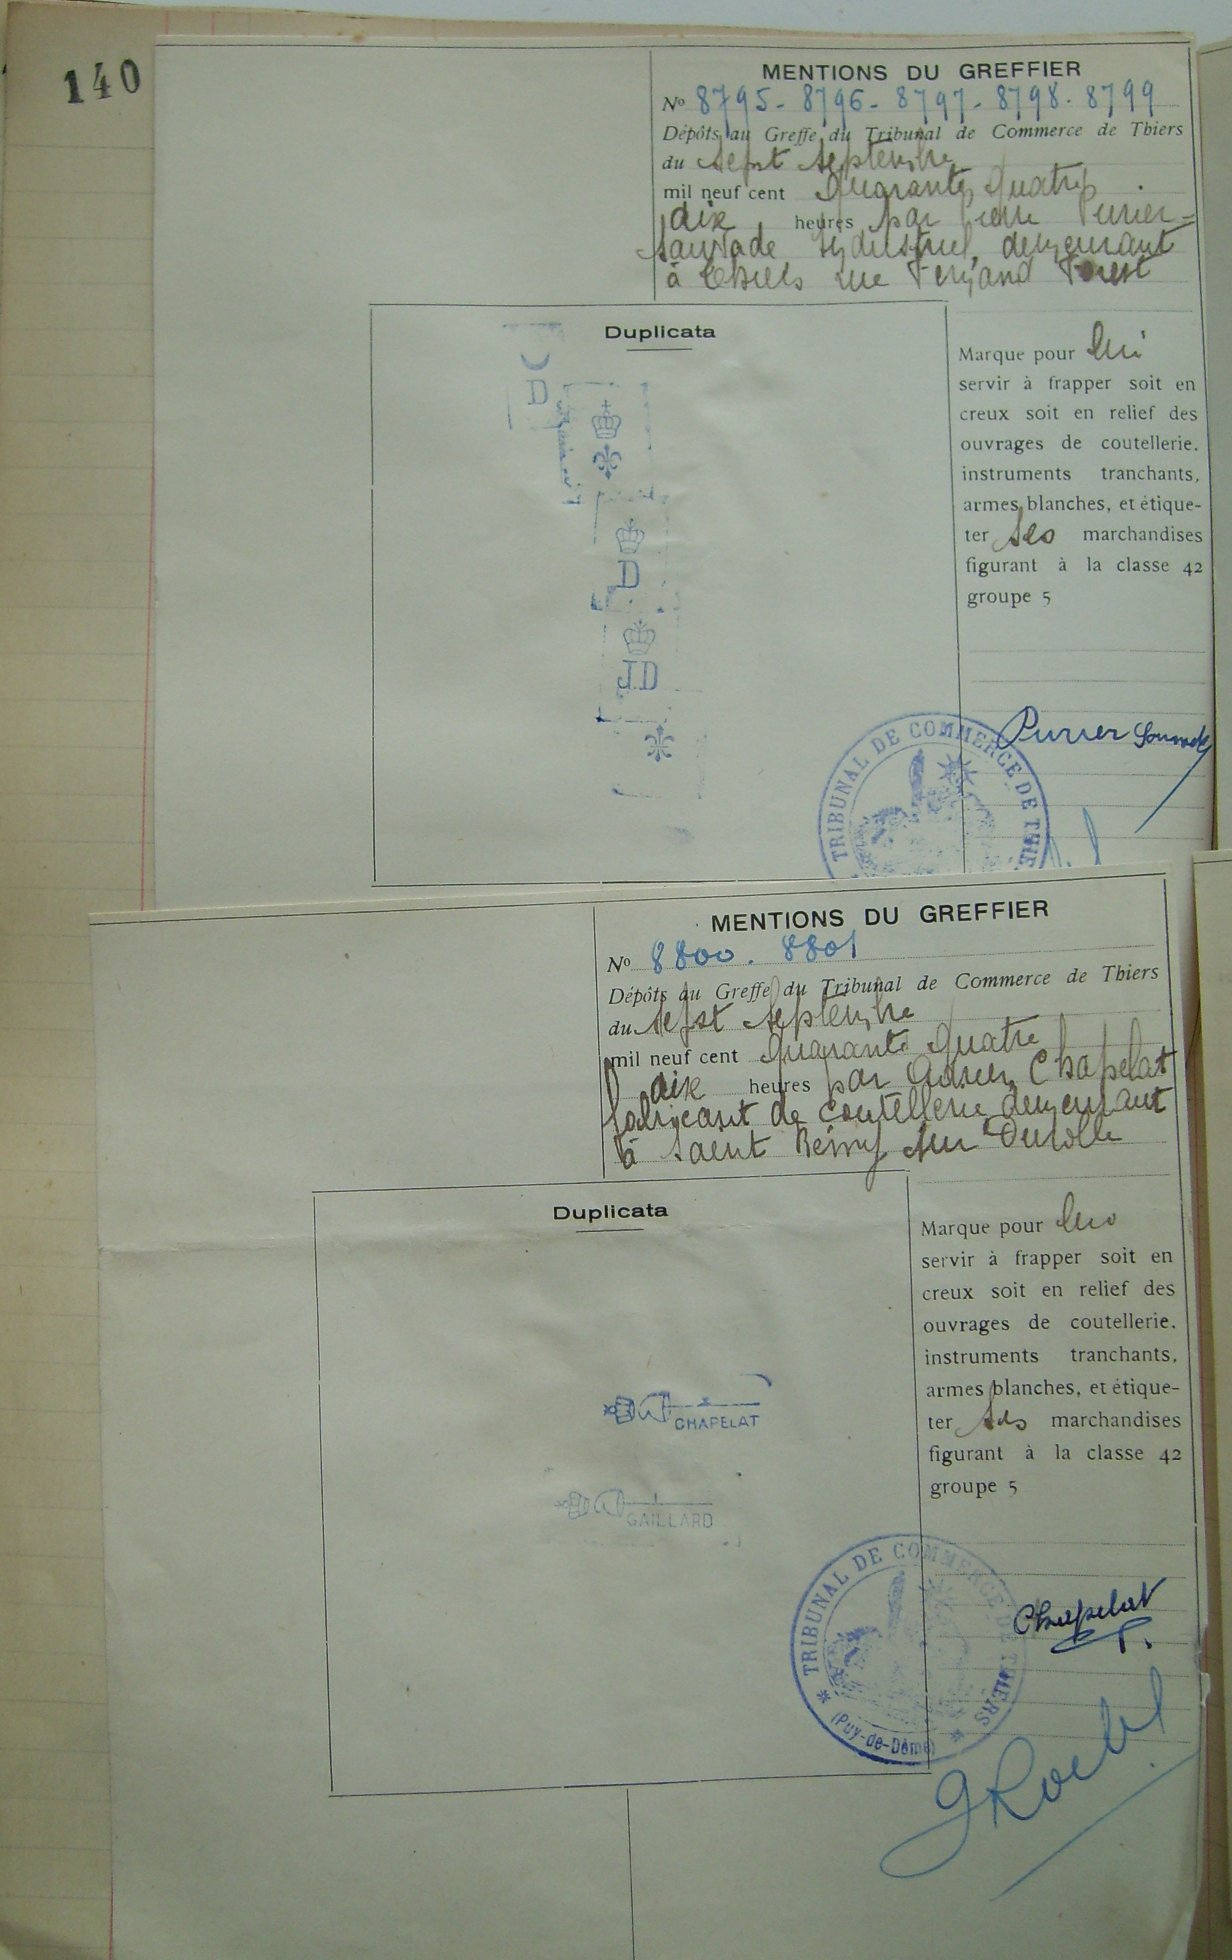 140
MENTIONS DU GREFFIER
No 8795 - 8796 - 8797 - 8798 - 8799
Dépôts au Greffe du Tribunal de Commerce de Thiers
du sept septembre
mil neuf cent quarante quatre
dix heures par Pierre
industriel, demeurant
à Thiers rue Fernand Forest
Duplicata
D
D
J.D
Marque pour lui
servir à frapper soit en
creux soit en relief des
ouvrages de coutellerie,
instruments tranchants,
armes blanches, et étique-
ter ses marchandises
figurant à la classe 42
groupe 5
TRIBUNAL DE COMMERCE DE THIE
MENTIONS DU GREFFIER
No 8800 . 8801
Dépôts au Greffe du Tribunal de Commerce de Thiers
du sept septembre
mil neuf cent quarante quatre
dix heures par Chapelat
fabricant de coutellerie demeurant
à Saint Rémy sur Durolle
Duplicata
CHAPELAT
GAILLARD
Marque pour lui
servir à frapper soit en
creux soit en relief des
ouvrages de coutellerie,
instruments tranchants,
armes blanches, et étique-
ter ses marchandises
figurant à la classe 42
groupe 5
TRIBUNAL DE COMMERCE DE THIERS
(Puy-de-Dôme)
Chapelat